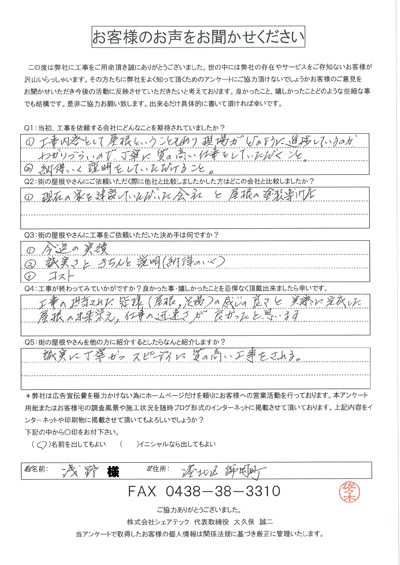 お客様のお声をお聞かせください
この度は弊社に工事をご用命頂き誠にありがとうございました。世の中には弊社の存在やサービスをご存知ないお客様が
沢山いらっしゃいます。その方たちに弊社をよく知って頂くためのアンケートにご協力頂けないでしょうかお客様のご意見を
お聞かせいただき今後の活動に反映させていただきたいと考えております。良かったこと、嬉しかったことどのような些細な事
でも結構です。是非ご協力お願い致します。出来るだけ具体的に書いて頂ければ幸いです。
Q1:当初、工事を依頼する会社にどんなことを期待されていましたか?
① 工事内容として屋根ということもあり現場がどのように進捗しているのか
わかりづらいので丁寧に質の高い仕事をしていただくこと。
② 納得いく説明をしていただけること。
Q2:街の屋根やさんにご依頼いただく際に他社と比較しましたかした方はどこの会社と比較しましたか?
① 現在の家を建設いただいた会社 と 屋根の塗装専門店
Q3:街の屋根やさんに工事をご依頼いただいた決め手は何ですか?
① 今迄の実績
② 誠実さと きちんと説明(納得のいく)
③ コスト
Q4:工事が終わってみていかがですか?良かった事・嬉しかったことを忌憚なく頂戴出来ましたら幸いです。
工事の担当された皆様(屋根,足場)の感じの良さと実際に完成した
屋根の出来栄え,仕事の迅速さが良かったと思います
Q5:街の屋根やさんを他の方に紹介するとしたらなんと紹介しますか?
誠実に丁寧かつスピーディに質の高い工事をされる。
*弊社は広告宣伝費を極力かけない為にホームページだけを頼りにお客様への営業活動を行っております。本アンケート
用紙またはお客様宅の調査風景や施工状況を随時ブログ形式のインターネットに掲載させて頂いております。上記内容をイ
ンターネットや印刷物に掲載させて頂いてもよろしいでしょうか?
下記の中から〇印をお付下さい。
(〇)名前を出してもよい ( )イニシャルなら出してもよい
お名前: 浅野 様 ご住所: 港北区
FAX 0438-38-3310
ご協力ありがとうございました。
株式会社シェアテック 代表取締役 大久保 誠二
当アンケートで取得したお客様の個人情報は関係法規に基づき厳正に管理いたします。
佐々木